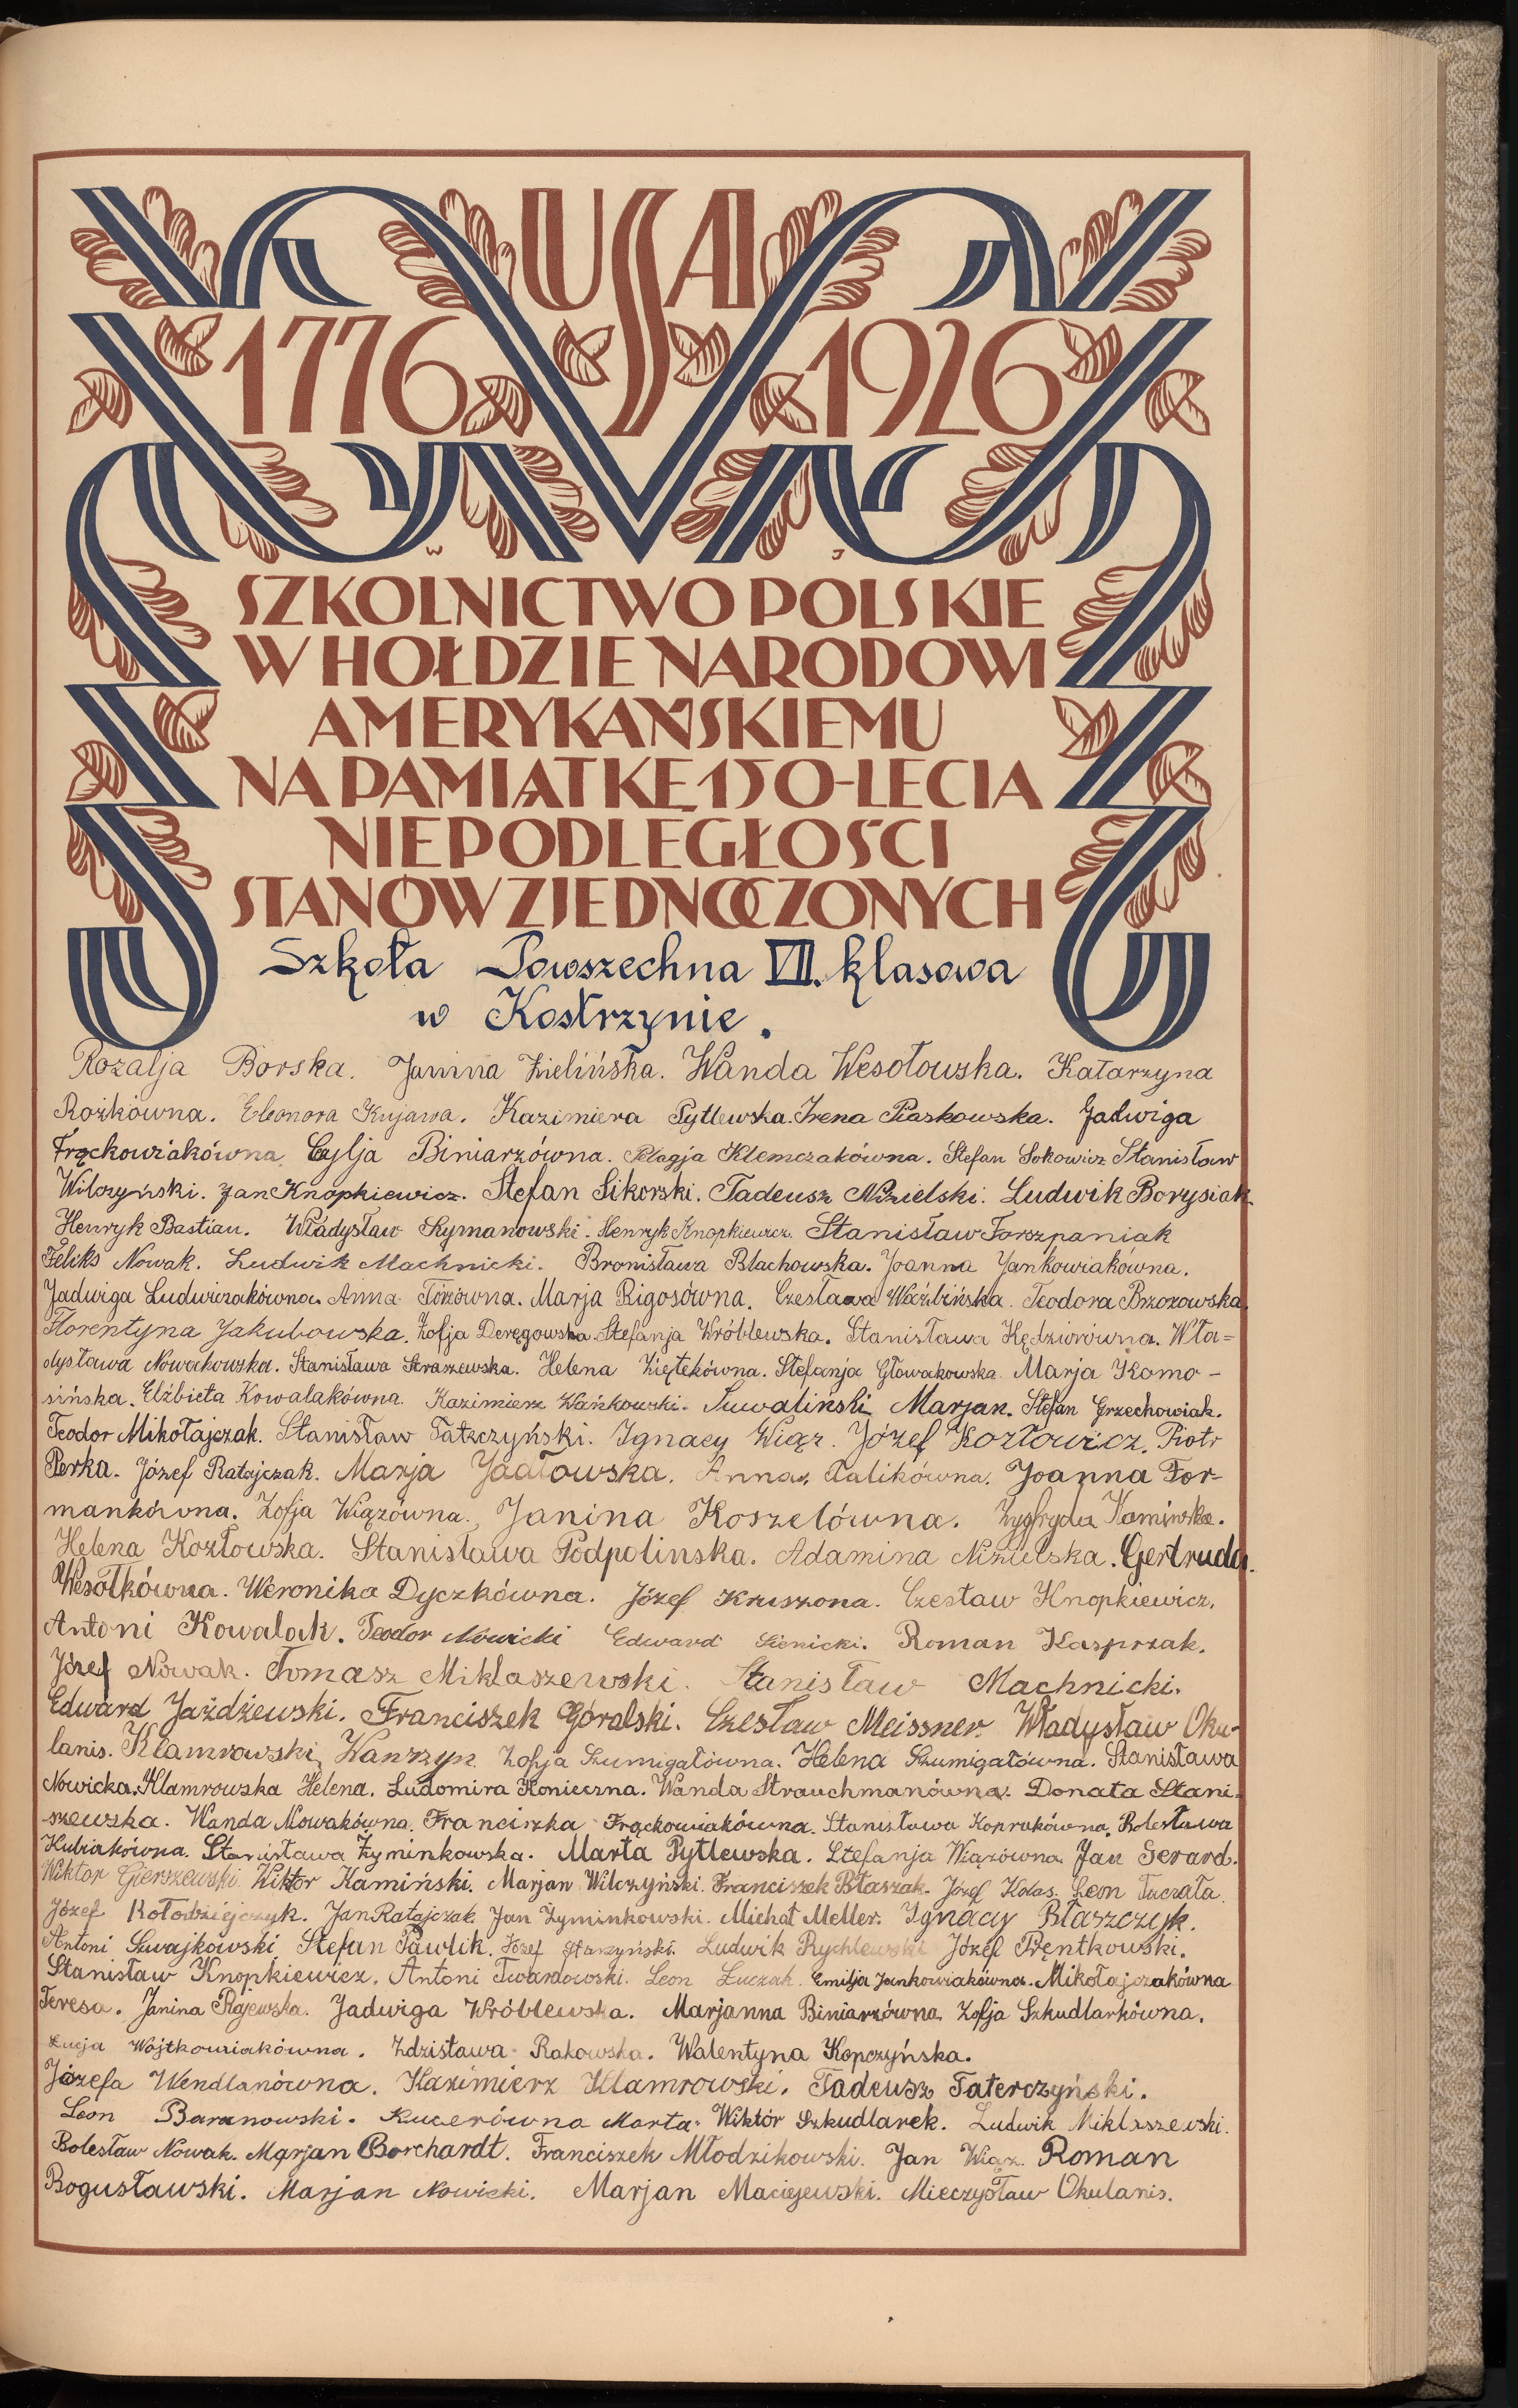 USA
1776 1926
W J
SZKOLNICTWO POLSKIE
W HOŁDZIE NARODOWI
AMERYKAŃSKIEMU
NA PAMIĄTKĘ 150-LECIA
NIEPODLEGŁOŚCI
STANÓW ZJEDNOCZONYCH
Szkoła Powszechna VII. klasowa
w Kostrzynie.
Rozalja Borska. Janina Zielińska. Wanda Wesołowska. Katarzyna
Rożkówna. Eleonora Kujawa. Kazimiera Pytlewska. Irena Piaskowska. Jadwiga
Frąckowiakówna. Cylja Biniarzówna. Pelagja Klemczakówna. Stefan Sokowicz Stanisław
Wilczyński. Jan Knopkiewicz. Stefan Sikorski. Tadeusz Nizielski. Ludwik Borysiak
Henryk Bastian. Władysław Szymanowski. Henryk Knopkiewicz. Stanisław Forszpaniak
Feliks Nowak. Ludwik Machnicki. Bronisława Blachowska. Joanna Jankowiakówna.
Jadwiga Ludwiczakówna. Anna Marja Rigosówna. Czesława Waźbińska. Teodora Brzozowska.
Florentyna Jakubowska. Zofja Deręgowska. Stefanja Wróblewska. Stanisława Kędziorówna. Wła=
dysława Nowakowska. Stanisława Straszewska. Helena Ziętekówna. Stefanja Głowakowska. Marja Komo-
sińska. Elżbieta Kowalakówna. Kazimierz Wańkowski. Suwaliński Marjan. Stefan Grzechowiak.
Teodor Mikołajczak. Stanisław Ignacy Wiąz. Józef Kozłowicz. Piotr
Perka. Józef Ratajczak. Marja Jadłowska. Anna Palikówna. Joanna For-
mankówna. Zofja Wiązówna. Janina Koszelówna. Zygfryda Kamińska.
Helena Kozłowska. Stanisława Podpolinska. Adamina Nizielska. Gertruda
Wesółkówna. Weronika Dyczkówna. Józef Kruszona. Czesław Knopkiewicz.
Antoni Kowalak. Teodor Nowicki Edward Sienicki. Roman Kasprzak.
Józef Nowak. Tomasz Miklaszewski. Stanisław Machnicki.
Edward Jażdżewski. Franciszek Góralski. Czesław Meissner. Władysław Oku-
lanis. Klamrowski Wawrzyn. Zofja Szumigałówna. Helena Szumigałówna. Stanisława
Nowicka. Klamrowska Helena. Ludomira Konieczna. Wanda Strauchmanówna. Donata Stani-
szewska. Wanda Nowakówna. Franciszka Frąckowiakówna. Stanisława Koprukówna. Bolesława
Kubiakówna. Stanisława Żyminkowska. Marta Pytlewska. Stefanja Wiązówna. Jan Gerard.
Wiktor Gierszewski. Wiktor Kamiński. Marjan Wilczyński. Franciszek Błaszak. Józef Kolas. Leon Tuczała.
Józef Kołodziejczyk. Jan Ratajczak. Jan Żyminkowski. Michał Meller. Ignacy Błaszczyk.
Antoni Szwajkowski Stefan Pawlik. Józef Starzyński. Ludwik Rychlewski Józef Prętkowski.
Stanisław Knopkiewicz. Antoni Twardowski. Leon Łuczak. Emilja Jankowiakówna. Mikołajczakówna
Teresa. Janina Rajewska. Jadwiga Wróblewska. Marjanna Biniarzówna. Zofja Szkudlarkówna.
Łucja Wojtkowiakówna. Zdzisława Rakowska. Walentyna Kopczyńska.
Józefa Wendlanówna. Kazimierz Klamrowski. Tadeusz Taterczyński.
Leon Baranowski. Kucerówna Marta. Wiktór Szkudlarek. Ludwik Miklaszewski.
Bolesław Nowak. Marjan Borchardt. Franciszek Młodzikowski. Jan Wiąz. Roman
Bogusławski. Marjan Nowicki. Marjan Maciejewski. Mieczysław Okulanis.